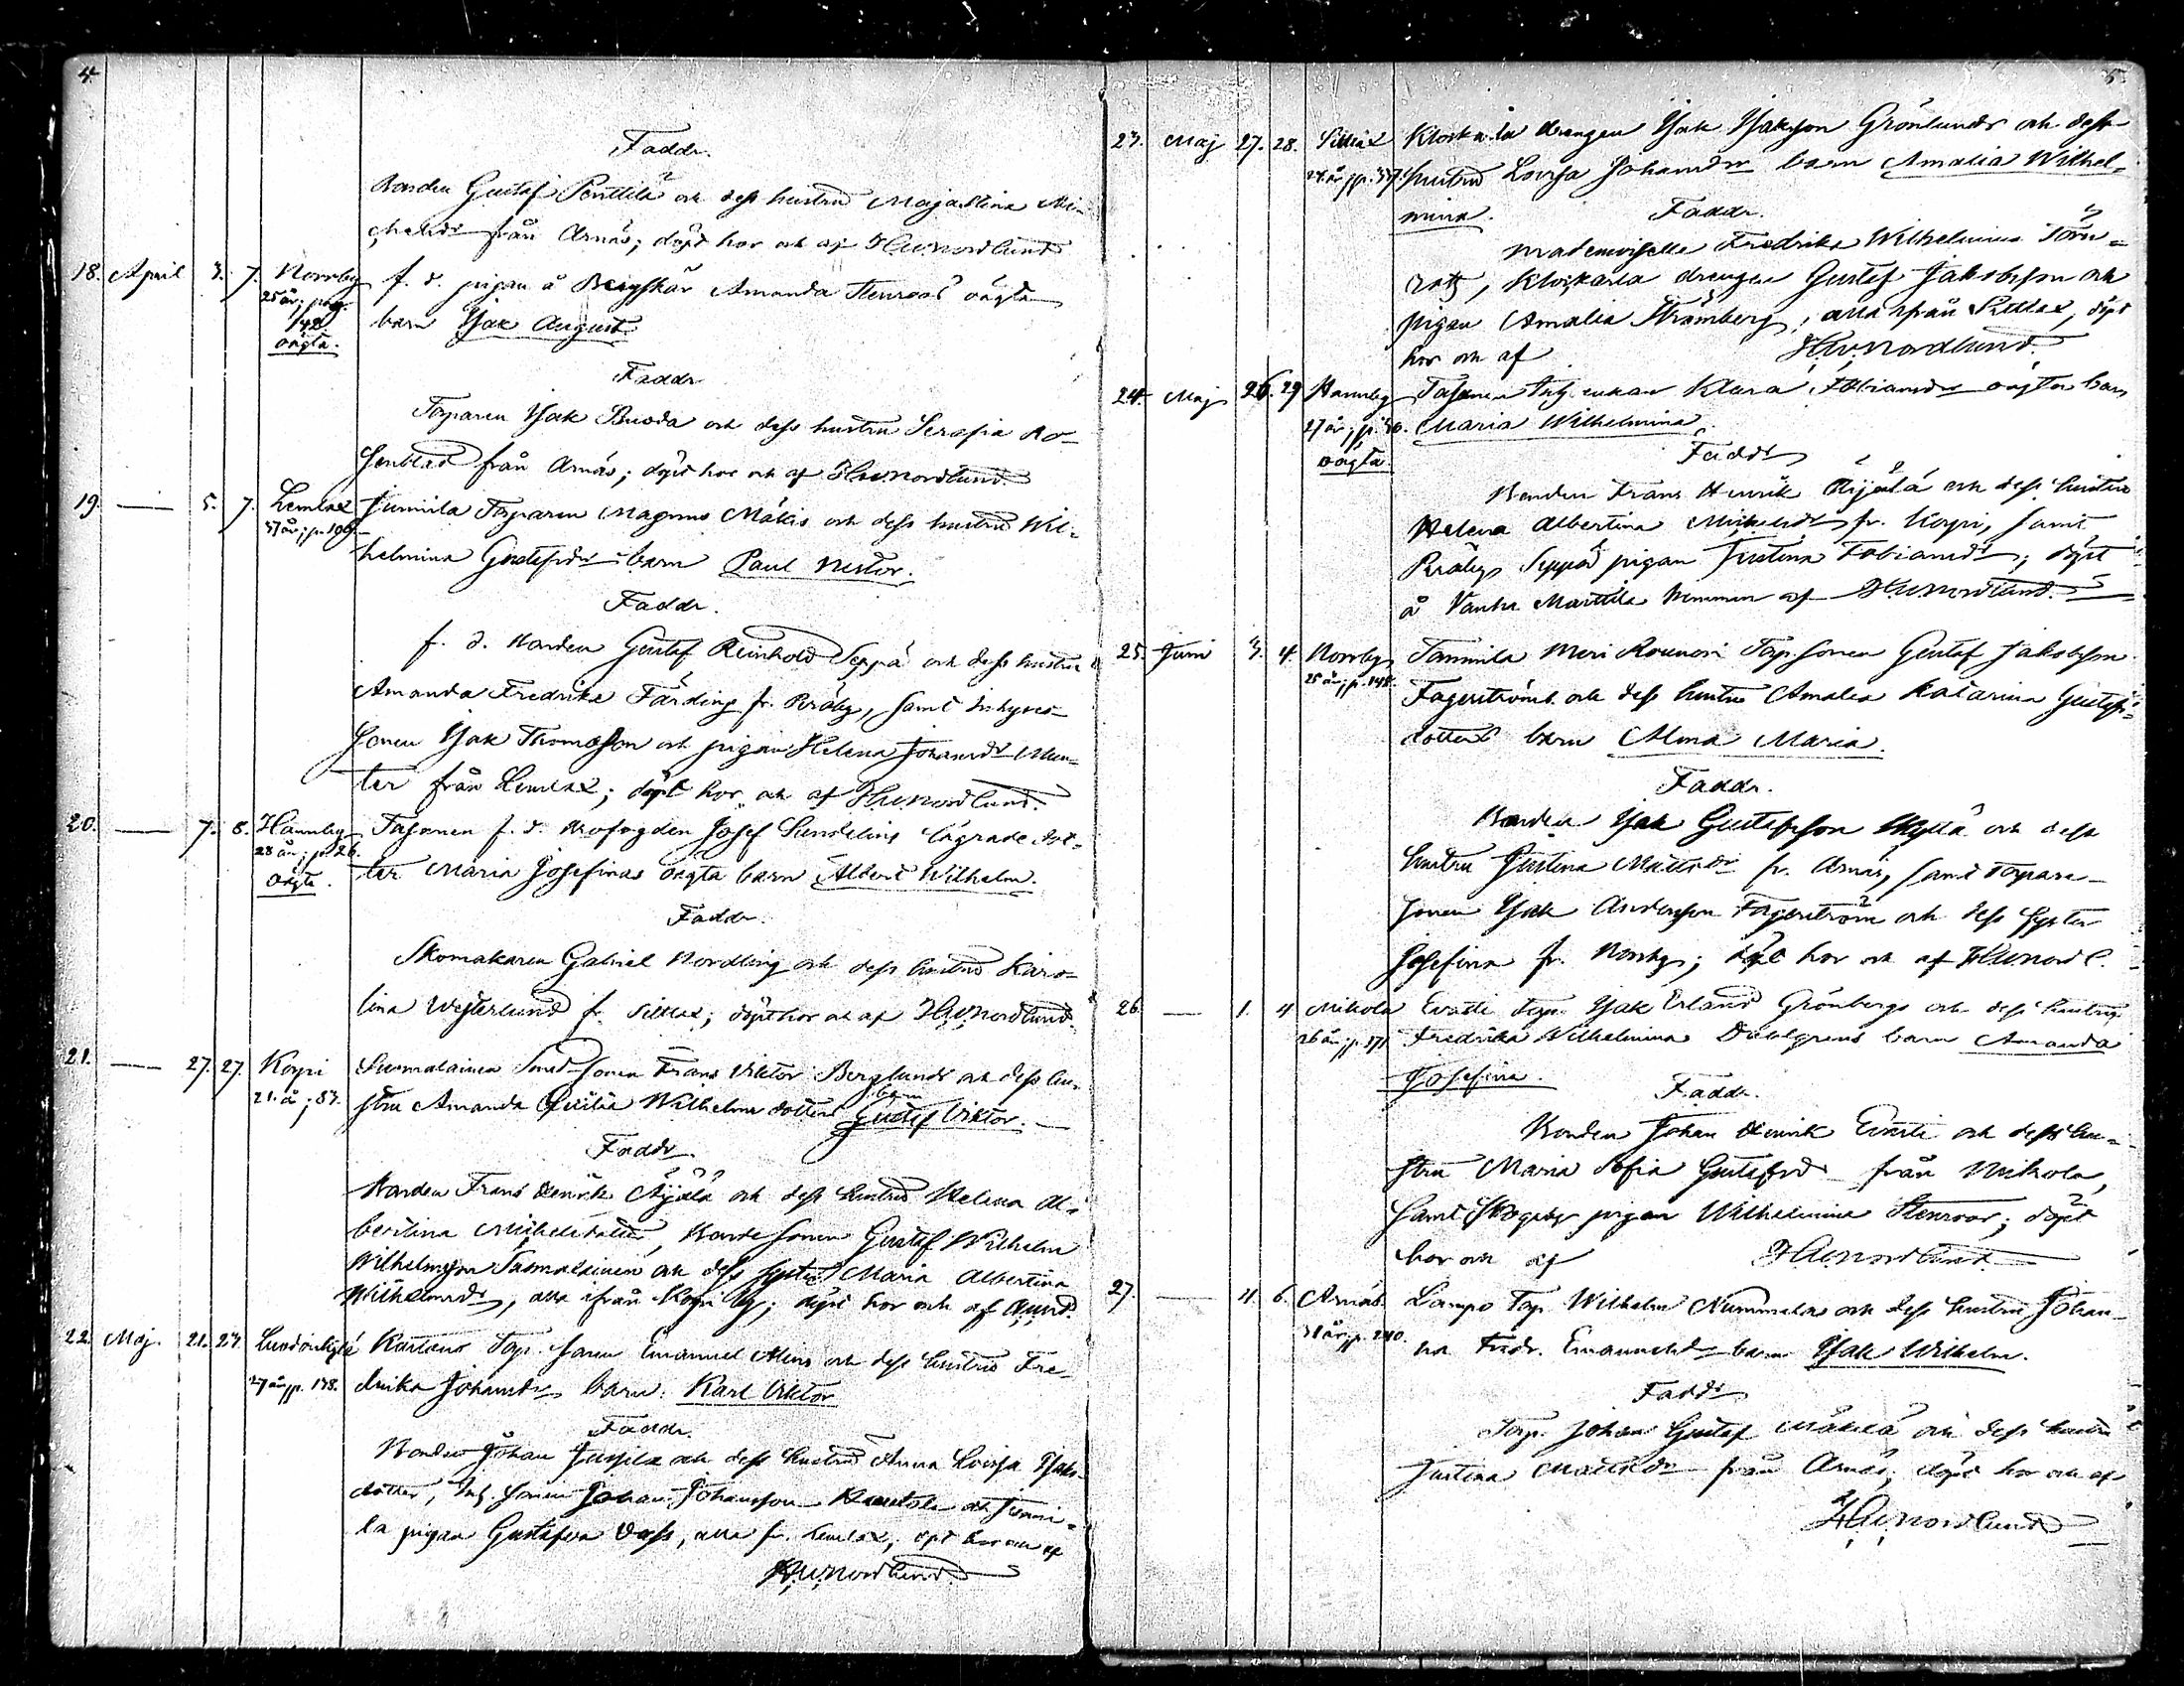 4.
Faddr.
Bonden Gustaf Penttilä och dess hustru Maja Stina Mi-
chelsdr från Arnäs; döpt hos och af H.W. Nordlund
18. April 3. 7. Norrby f. d. pigan å Bergskär Amanda Stenroos' oägta
25 år; pag. 142. oägta. barn Isak August.
Faddr
Torparen Isak Buoda och dess hustru Serafia Ro-
senblad från Arnäs; döpt hos och af H.W. Nordlund.
19. — 5. 7. Lemlax Junnila Torparen Magnus Mäkis och dess hustru Wil-
37 år; p. 109. helmina Gustafsdrs barn Paul Nestor.
Faddr.
f. d. Bonden Gustaf Reinhold Seppä och dess hustru
Amanda Fredrika Färding fr. Peräby, samt Inhyses-
sonen Isak Thomasson och pigan Helena Johansdr Mun-
ter från Lemlax; döpt hos och af H.W. Nordlund.
20. — 7. 8. Hamnby Tasanen f. d. Krofogden Josef Sundelins lägrade dot-
28 år; p. 26. oägta. ter Maria Josefinas oägta barn Albert Wilhelm.
Faddr.
Skomakaren Gabriel Nordling och dess hustru Karo-
lina Westerlund fr. Sillax; döpt hos och af H.W. Nordlund.
21. — 27. 27. Korpi Suomalainen Smed-sonen Frans Viktor Berglunds och dess hu-
21. å; 83. stru Amanda Cecilia Wilhelmsdotters barn Gustaf Viktor. —
Faddr
Bonden Frans Henrik Äijälä och dess hustru Helena Al-
bertina Michelsdotter, Bondesonen Gustaf Wilhelm
Wilhelmsson Suomalainen och dess syster Maria Albertina
Wilhelmsdr, alla ifrån Korpi by; döpt hos och af
22. Maj. 21. 23. Kartano Torp. sonen Emanuel Alens och dess hustru Fre-
27 år p. 178. drika Johansdrs barn: Karl Viktor
Faddr.
Bonden Johan Jussila och dess hustru Anna Lovisa Isaks-
dotter, Inh. sonen Johan Johansson och Junni-
la pigan Gustafva Dass, alla fr. Lemlax; döpt hos och af
H.W. Nordlund
5.
23. Maj 27. 28. Sillax Klockarla drengen Isak Isaksson Grönlunds och dess
24 år p. 37. hustru Lovisa Johansdrs barn Amalia Wilhel-
mina. Faddr.
Mademoiselle Fredrika Wilhelmina Törn-
, Klockarla drengen Gustaf Jakobsson och
pigan Amalia Strömberg, alla från Sillax, döpt
hos och af H.W. Nordlund.
24. Maj 26. 29 Hamnby Tasanen Klara Fabiansdrs oägta barn
27 år; p. 30. oägta. Maria Wilhelmina.
Faddr
Bonden Frans Henrik Äijälä och dess hustru
Helena Albertina Michelsdr fr. Korpi, samt
Peräby Seppä pigan Justina Fabiansdr; döpt
å Vanha Marttila hemman af H.W. Nordlund.
25. Juni 3. 4. Norrby Tammila Torp. sonen Gustaf Jakobsson
25 år; p. 148. Fagerströms och dess hustru Amalia Katarina Gustafs-
dotters barn Alma Maria.
Faddr.
Bonden Isak Gustafsson Skyttä och dess
hustru Justina Mattsdr fr. Arnäs, samt Torpare-
sonen Isak Andersson Fagerström och dess syster
Josefina fr. Norrby; döpt hos och af H.W. Nordl.
26. — 1. 4 Nikola Eväsi torp. Isak Erland Grönbergs och dess hustru
26 år; p. 171 Fredrika Wilhelmina Dahlgrens barn Amanda
Josefina. Faddr.
Bonden Johan Henrik och dess hu-
stru Maria Sofia Gustafsdr från Nikola,
samt Skogsby pigan Wilhelmina Stenroos; döpt
hos och af H.W. Nordlund
27. — 4. 6. Arnäs Lampo Torp. Wilhelm Nummelas och dess hustru Johan-
31 år; p. 240. na Fredr. Emanuelsdrs barn Isak Wilhelm.
Faddr
Torp. Johan Gustaf Mäkilä och dess hustru
Justina Mattsdr från Arnäs; döpt hos och af
H.W. Nordlund